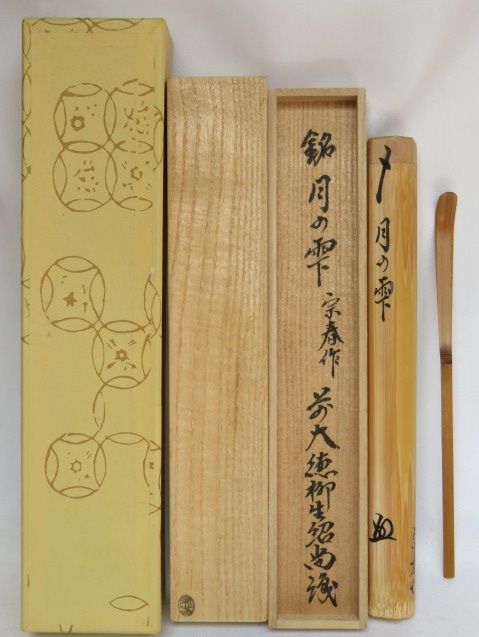 銘 月の雫 宗春作 前大徳柳生紹尚識
〆 月の雫